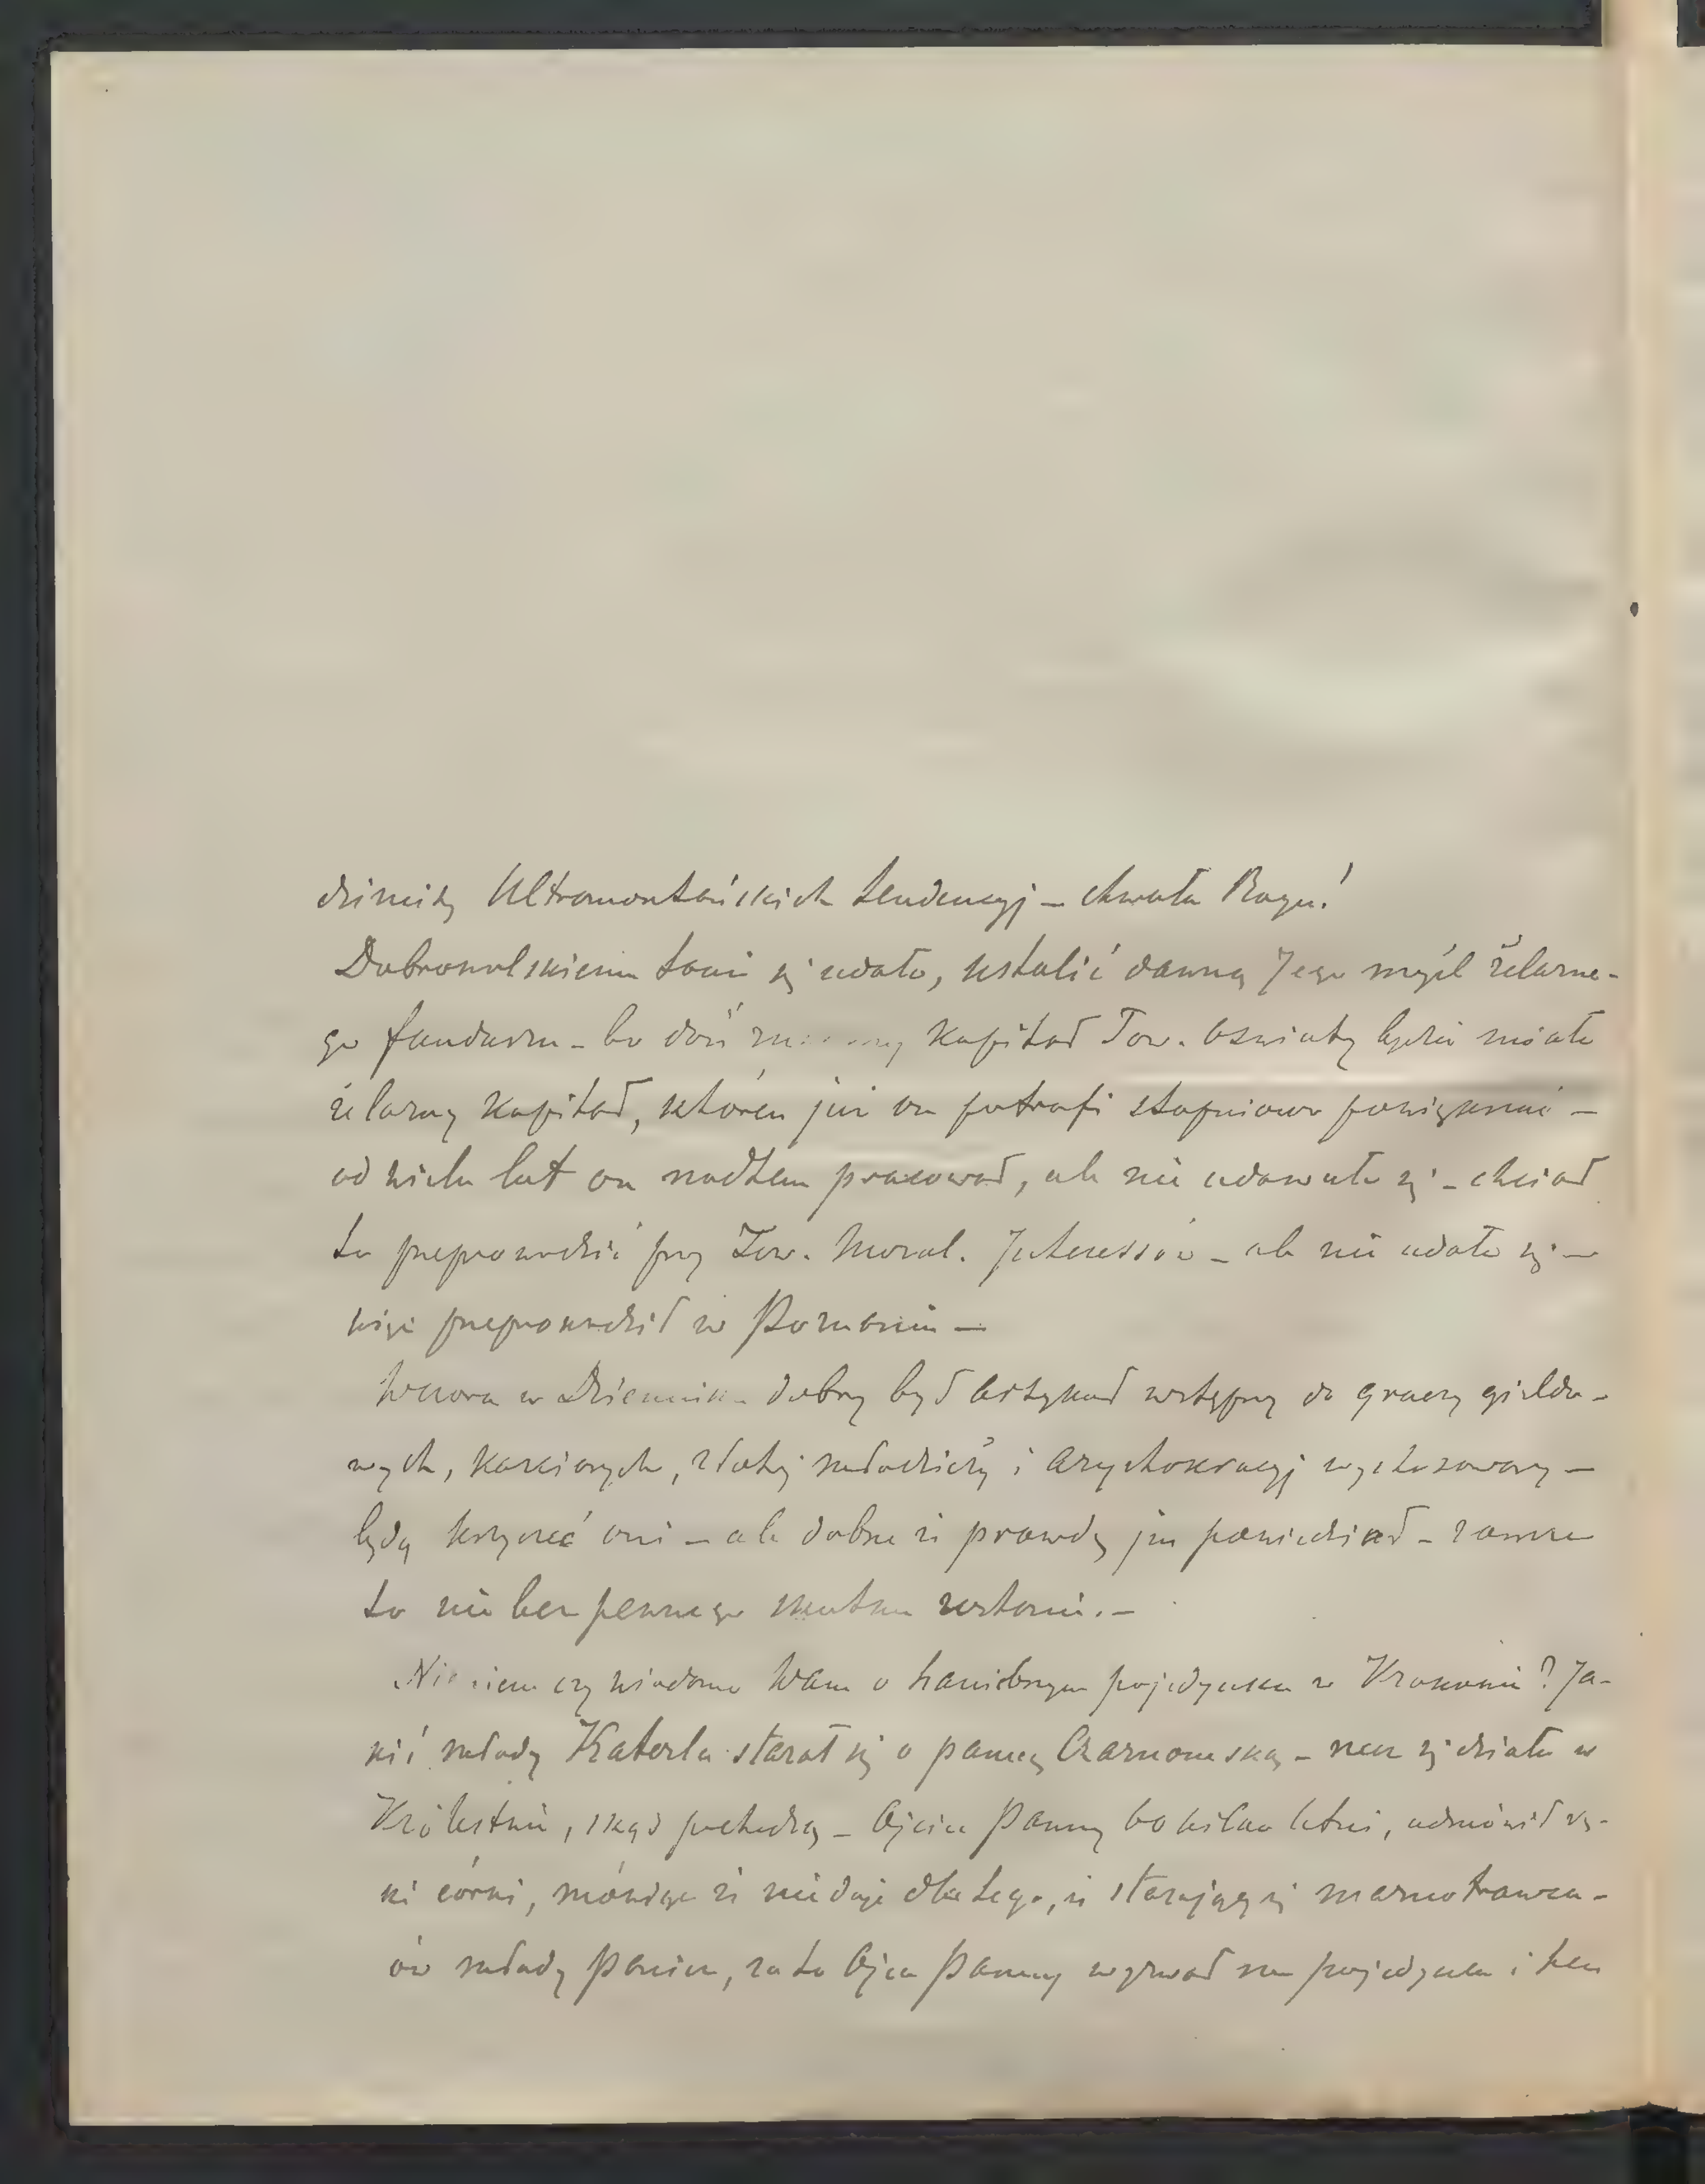 Ultramontańskich tendencyj – chwała Bogu!
Dobrowolskiemu tam się udało, ustalić dawną Jego myśl żelazne-
go funduszu – bo dziś kapitał Tow. Oświaty będzie miało
żelazny kapitał, któren już on potrafi stopniowo powiększać –
od wielu lat on nadtem pracował, ale nie udawało się – chciał
to przeprowadzić przy Tow. Moral. Interessów – ale nie udało się –
więc przeprowadził w Poznaniu –
Wczora w Dzienniku dobry był artykuł wstępny do graczy giełdo-
wych, karcianych, złotej młodzieży i arystokracyj wystosowany –
będą krzyczeć oni – ale dobrze iż prawdę im powiedział – zawsze
to nie bez pewnego skutku zostanie. –
Nie wiem czy wiadomo Wam o haniebnym pojedynku w Krakowie? Ja-
kiś młody Katerla starał się o pannę Czarnomską – rzecz się działa w
Królestwie, skąd pochodzą – Ojciec panny 60 kilko letni, odmówił rę-
ki córki, mówiąc iż nie daje dlatego, iż starający się marnotrawca –
ów młody panicz, za to Ojca panny wyzwał na pojedynek i ten